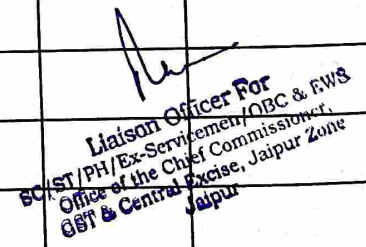 Liaison Officer For
SC/ST/PH/Ex-Servicemen/OBC & EWS
Office of the Chief Commissioner,
GST & Central Excise, Jaipur Zone
Jaipur